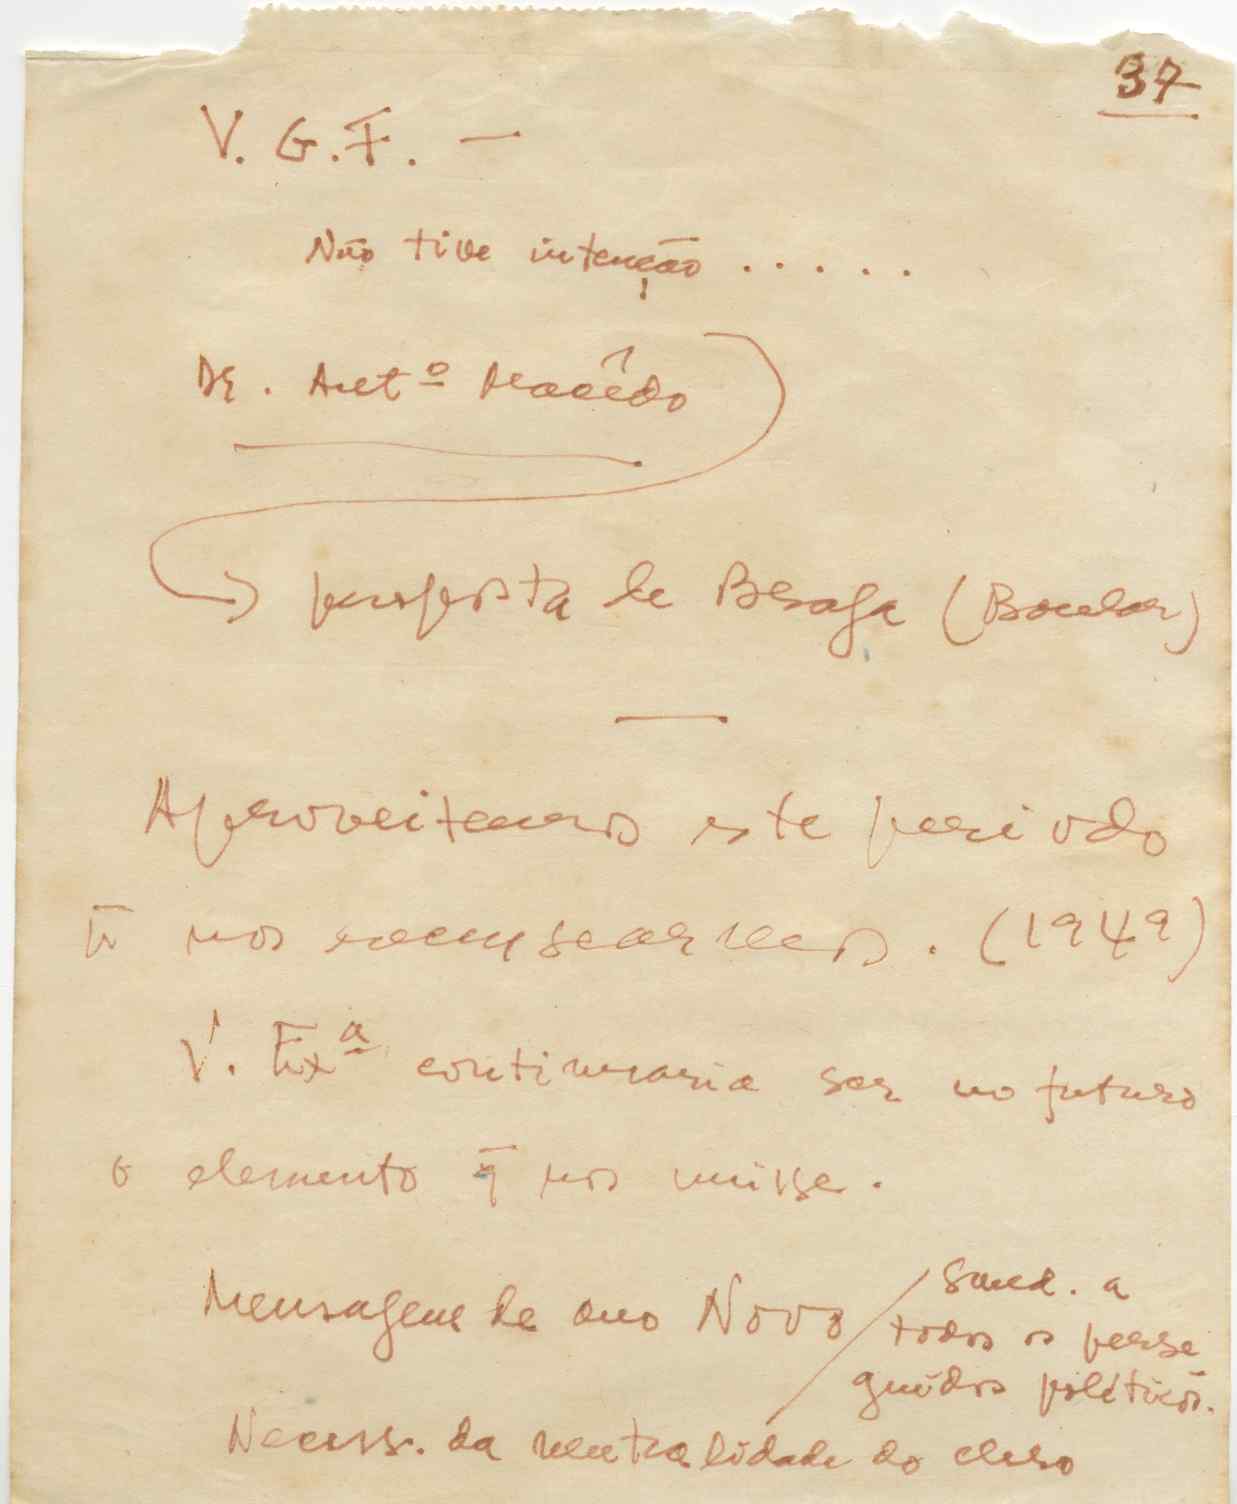 37
V. G. F. —
Não tive intenção . . . . .
Dr. Antº Macêdo
proposta de Braga (Bacelar)
Aproveitemos este periodo
nos
. (1949)
V. Exª continuaria ser no futuro
o elemento q̄ nos unisse.
Mensagem de ano Novo / saud. a
todos os perse
guidos politicos.
Necess. da neutralidade do clero